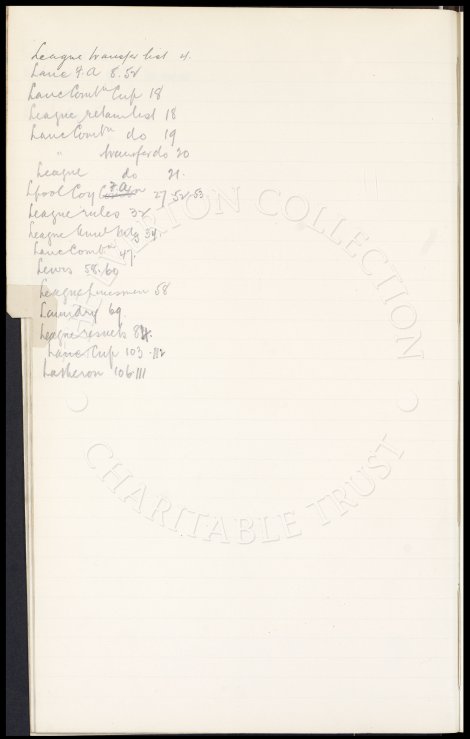 League transfer list 4.
Lanc F.A 8.52
Lanc Combn Cup 18
League retain list 18
Lanc Combn do 19
" transfer do 20
League do 21.
Lpool Coy F.A 27.52.53
League rules 32
League Annl Mtg 34
Lanc Combn 47.
Lewis 58.60
League linesmen 68
Laundry 69
League results 84.
Lanc. Cup 103.112
Latheron 106.111
EVERTON COLLECTION
CHARITABLE TRUST